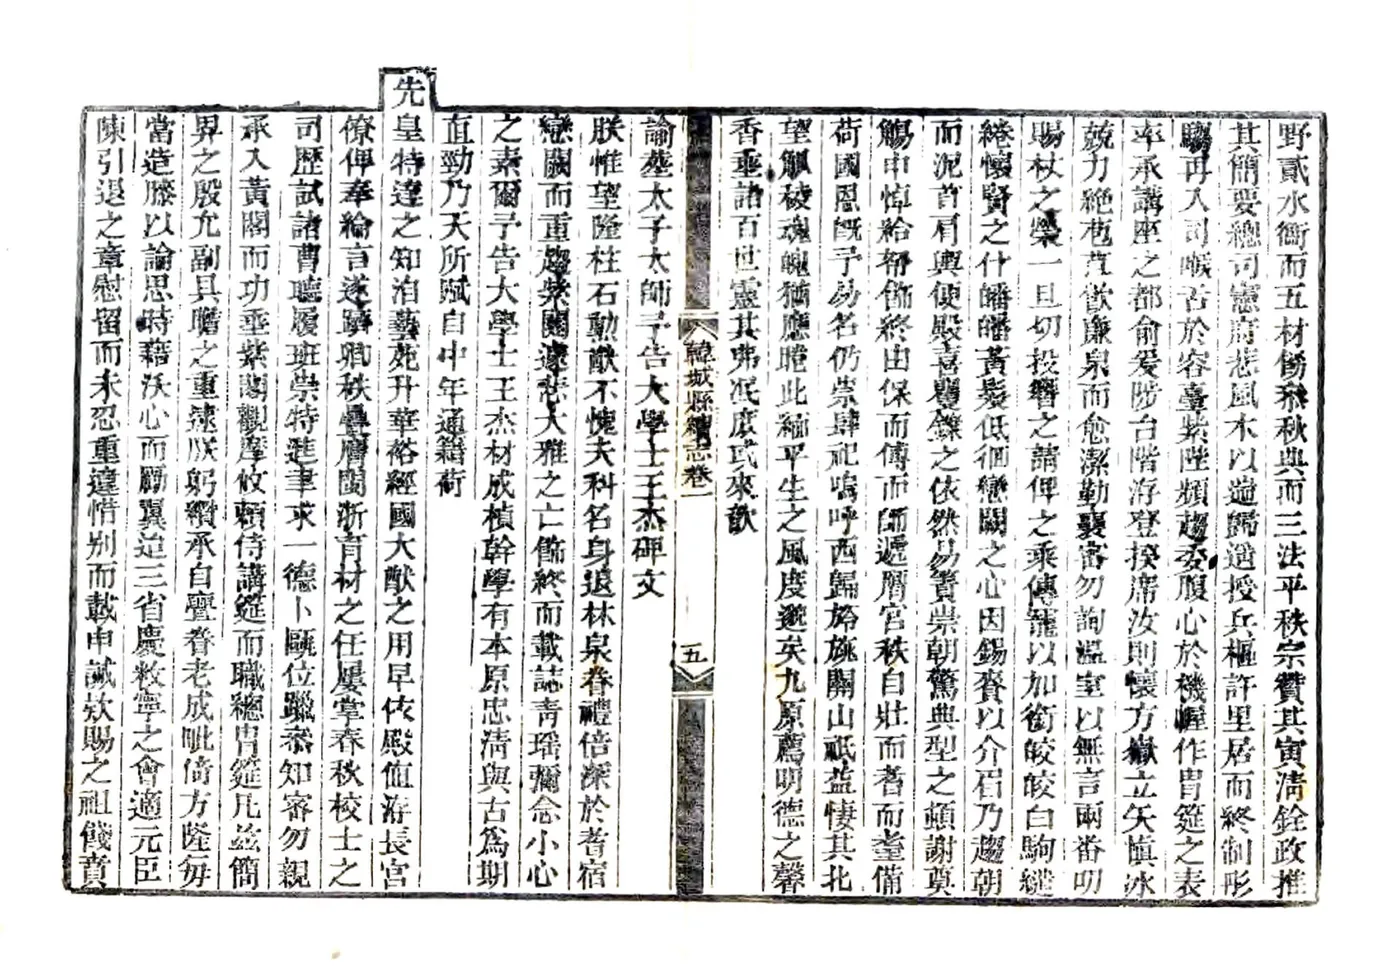 野貳水衡而五材飭飛秋典而三法平秩宗贊其寅淸銓政推
其簡要總司憲府悲風木以遄歸遥授兵樞許里居而終制彤
騶再入司喉舌於容臺紫陛頻趨委腹心於機幄作胄筵之表
率承講座之都俞爰陟台階洊登揆席汝則懷方嶽立矢愼冰
兢力絶苞苴飲廉泉而愈潔勤襄密勿詢溫室以無言兩番叨
賜杖之榮一旦切投簪之請俾之乘傳寵以加銜皎皎白駒縫
綣懷賢之什皤皤黃髮低徊戀闕之心因錫賚以介眉乃趨朝
而泥首肩輿便殿喜矍鑠之依然易簀崇朝驚典型之頓謝奠
觴申悼給帑飾終由保而傅而師遞膺宮秩自壯而耆而耋備
荷國恩旣予易名仍崇肆祀嗚呼西歸旂旐關山祗益悽其北
望觚稜魂魄猶應睠此緬平生之風度邈矣九原薦明德之馨
香垂諸百世靈其弗泯庶或來歆
韓城縣續志卷一
五
諭葬太子太師予告大學士王杰碑文
朕惟望隆柱石勳猷不愧夫科名身退林泉眷禮倍深於耆宿
戀闕而重趨紫闥遽悲大雅之亡飾終而載誌靑瑤彌念小心
之素爾予告大學士王杰材成楨幹學有本原忠淸與古爲期
直勁乃天所賦自中年通籍荷
先皇特達之知洎藝苑升華裕經國大猷之用早依殿値洊長宮
僚俾奉綸言遂躋戟秩疊膺閩浙育材之任屢掌春秋校士之
司歷試諸曹聽履班崇特進聿求一德卜甌位躐叅知密勿親
承入黃閣而功垂紫閣觀摩攸賴侍講筵而職總胄筵凡茲簡
界之殷允副具瞻之重逮朕躬纘承自亶眷老成毗倚方隆每
當造膝以論思時藉沃心而勵翼迨三省慶敉寧之會適元臣
陳引退之章慰留而未忍重違惜别而載申誠欵賜之祖餞賁